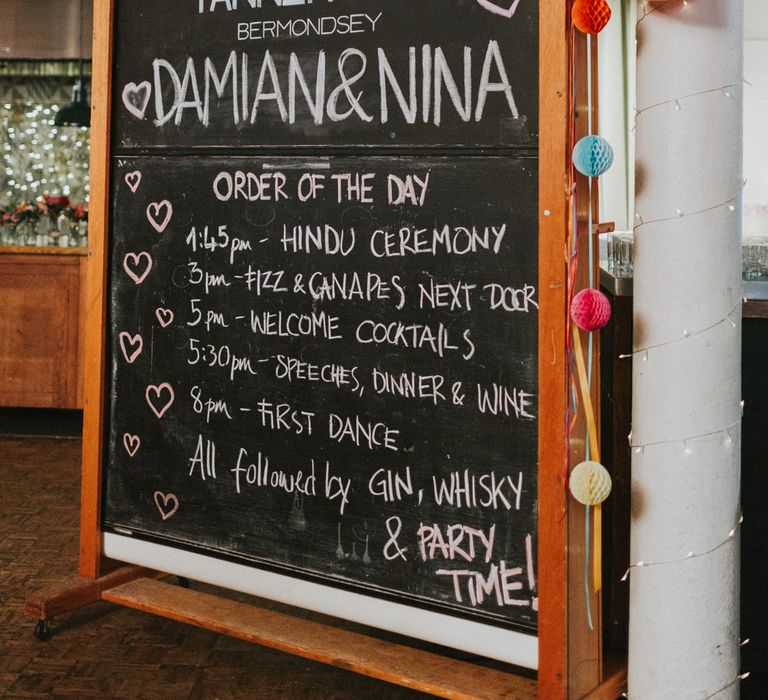 BERMONDSEY
DAMIAN & NINA
ORDER OF THE DAY
1:45pm - HINDU CEREMONY
3pm - FIZZ & CANAPES NEXT DOOR
5pm - WELCOME COCKTAILS
5:30pm - SPEECHES, DINNER & WINE
8pm - FIRST DANCE
All followed by GIN, WHISKY
& PARTY
TIME!